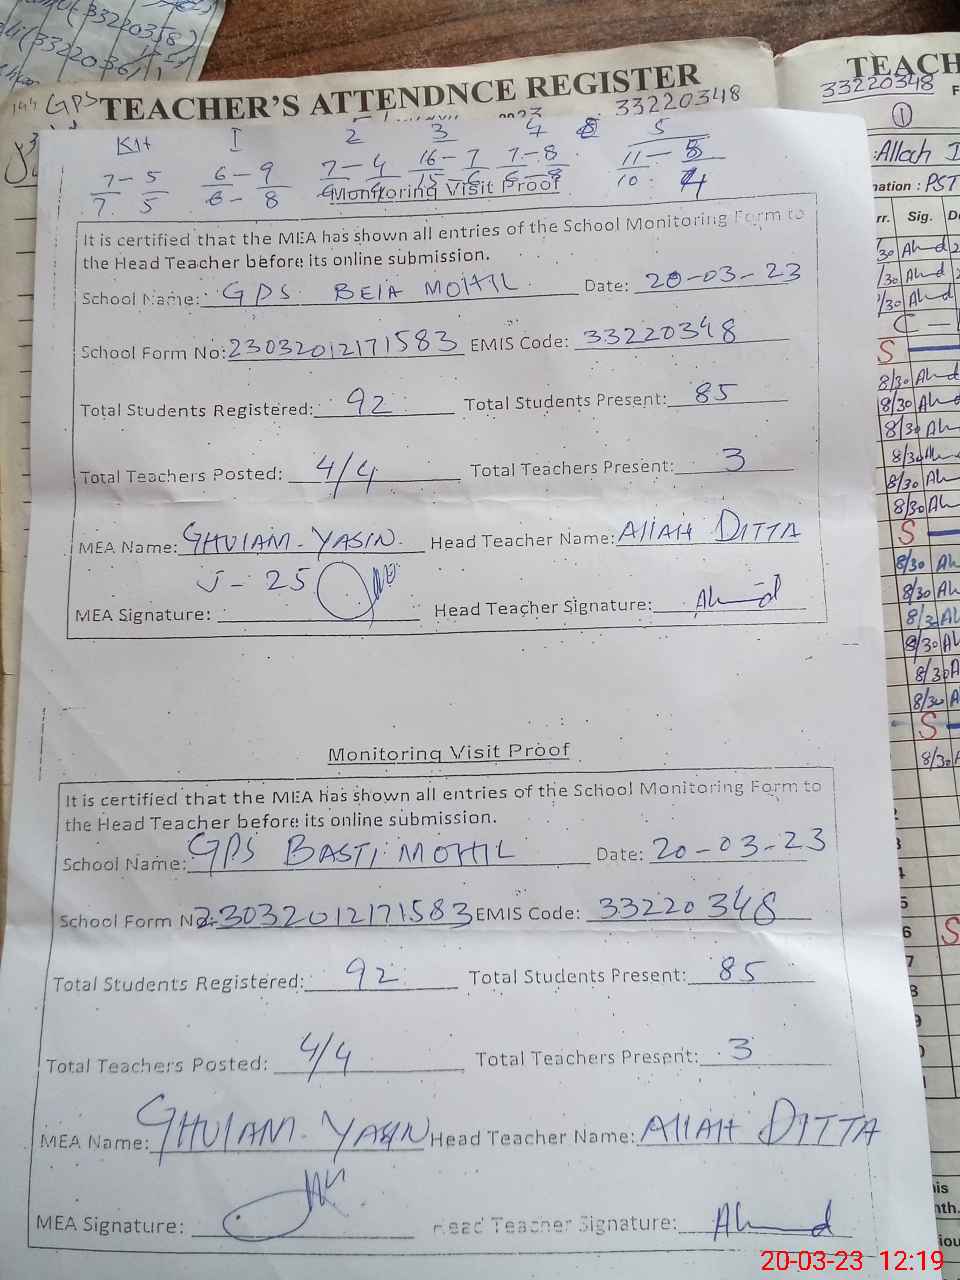 (33220358)
GPS
TEACHER'S ATTENDNCE REGISTER
33220348
TEACH
33220348
1
Allah D
nation : PST
rr. Sig.
KH I 2 3 4 5
7-5 6-9 7-4 16-7 7-8 11-8
7 5 6-8 15-6 10 4
Monitoring Visit Proof
It is certified that the MEA has shown all entries of the School Monitoring Form to
the Head Teacher before its online submission.
School Name: GPS BEIA MOHIL Date: 20-03-23
School Form No: 23032012171583 EMIS Code: 33220348
Total Students Registered: 92 Total Students Present: 85
Total Teachers Posted: 4/4 Total Teachers Present: 3
MEA Name: GHULAM YASIN Head Teacher Name: AllAH DITTA
J-25
MEA Signature: Head Teacher Signature: Ahmad
Monitoring Visit Proof
It is certified that the MEA has shown all entries of the School Monitoring Form to
the Head Teacher before its online submission.
School Name: GPS BASTI MOHIL Date: 20-03-23
School Form No: 23032012171583 EMIS Code: 33220348
Total Students Registered: 92 Total Students Present: 85
Total Teachers Posted: 4/4 Total Teachers Present: 3
MEA Name: GHULAM YASIN Head Teacher Name: AllAH DITTA
MEA Signature: Head Teacher Signature: Ahmad
20-03-23 12:19